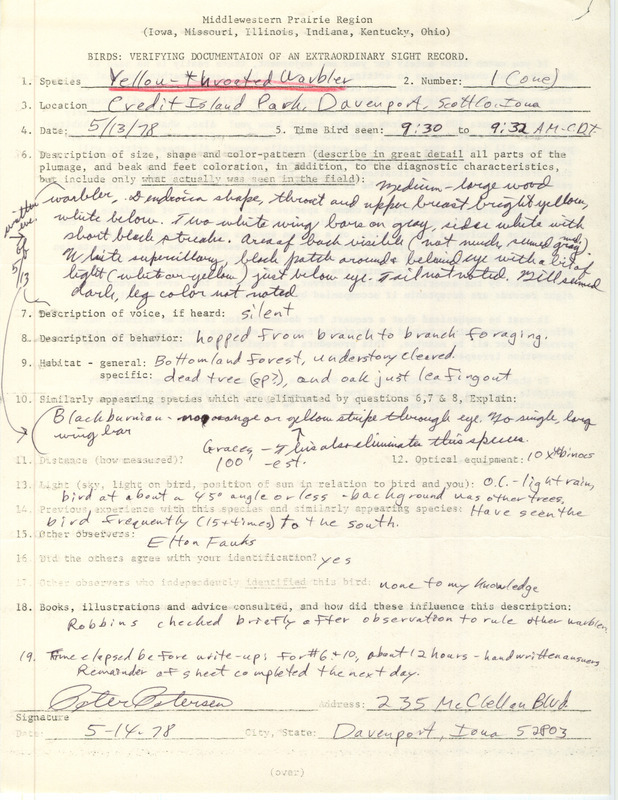 Middlewestern Prairie Region
(Iowa, Missouri, Illinois, Indiana, Kentucky, Ohio)
BIRDS: VERIFYING DOCUMENTAION OF AN EXTRAORDINARY SIGHT RECORD.
1. Species Yellow-throated Warbler 2. Number: 1 (one)
3. Location Credit Island Park, Davenport, Scott Co. Iowa
4. Date: 5/13/78 5. Time Bird seen: 9:30 to 9:32 AM-CDT
6. Description of size, shape and color-pattern (describe in great detail all parts of the
plumage, and beak and feet coloration, in addition, to the diagnostic characteristics,
but include only what actually was seen in the field): Medium-large wood
warbler, Dendroica shape, throat and upper breast bright yellow,
white below. Two white wing bars on gray, sides white with
short black streaks. Area of back visible (not much, seemed med. gray).
White supercillary, black patch around & behind eye with a bit of
light (white or yellow) just below eye. Tail not noted. Bill seemed
dark, leg color not noted
written
eve.
of
5/13
7. Description of voice, if heard: silent
8. Description of behavior: hopped from branch to branch foraging.
9. Habitat - general: Bottomland forest, understory cleared.
specific: dead tree (sp?), and oak just leafing out
10. Similarly appearing species which are eliminated by questions 6,7 & 8, Explain:
Blackburnian - no orange or yellow stripe through eye. No single, long
wing bar
Graces - This also eliminates this species.
11. Distance (how measured)? 100' -est. 12. Optical equipment: 10X40 binocs
13. Light (sky, light on bird, position of sun in relation to bird and you): O.C. - light rain,
bird at about a 45° angle or less - background was other trees.
14. Previous experience with this species and similarly appearing species: Have seen the
bird frequently (15+ times) to the south.
15. Other observers: Elton Fawks
16. Did the others agree with your identification? yes
17. Other observers who independently identified this bird: none to my knowledge
18. Books, illustrations and advice consulted, and how did these influence this description:
Robbins checked briefly after observation to rule other warblers.
19. Time elapsed before write-up: For #6 & 10, about 12 hours - handwritten answers
Remainder of sheet completed the next day.
Peter Petersen Address: 235 McClellan Blvd
Signature
Date: 5-14-78 City, State: Davenport, Iowa 52803
(over)